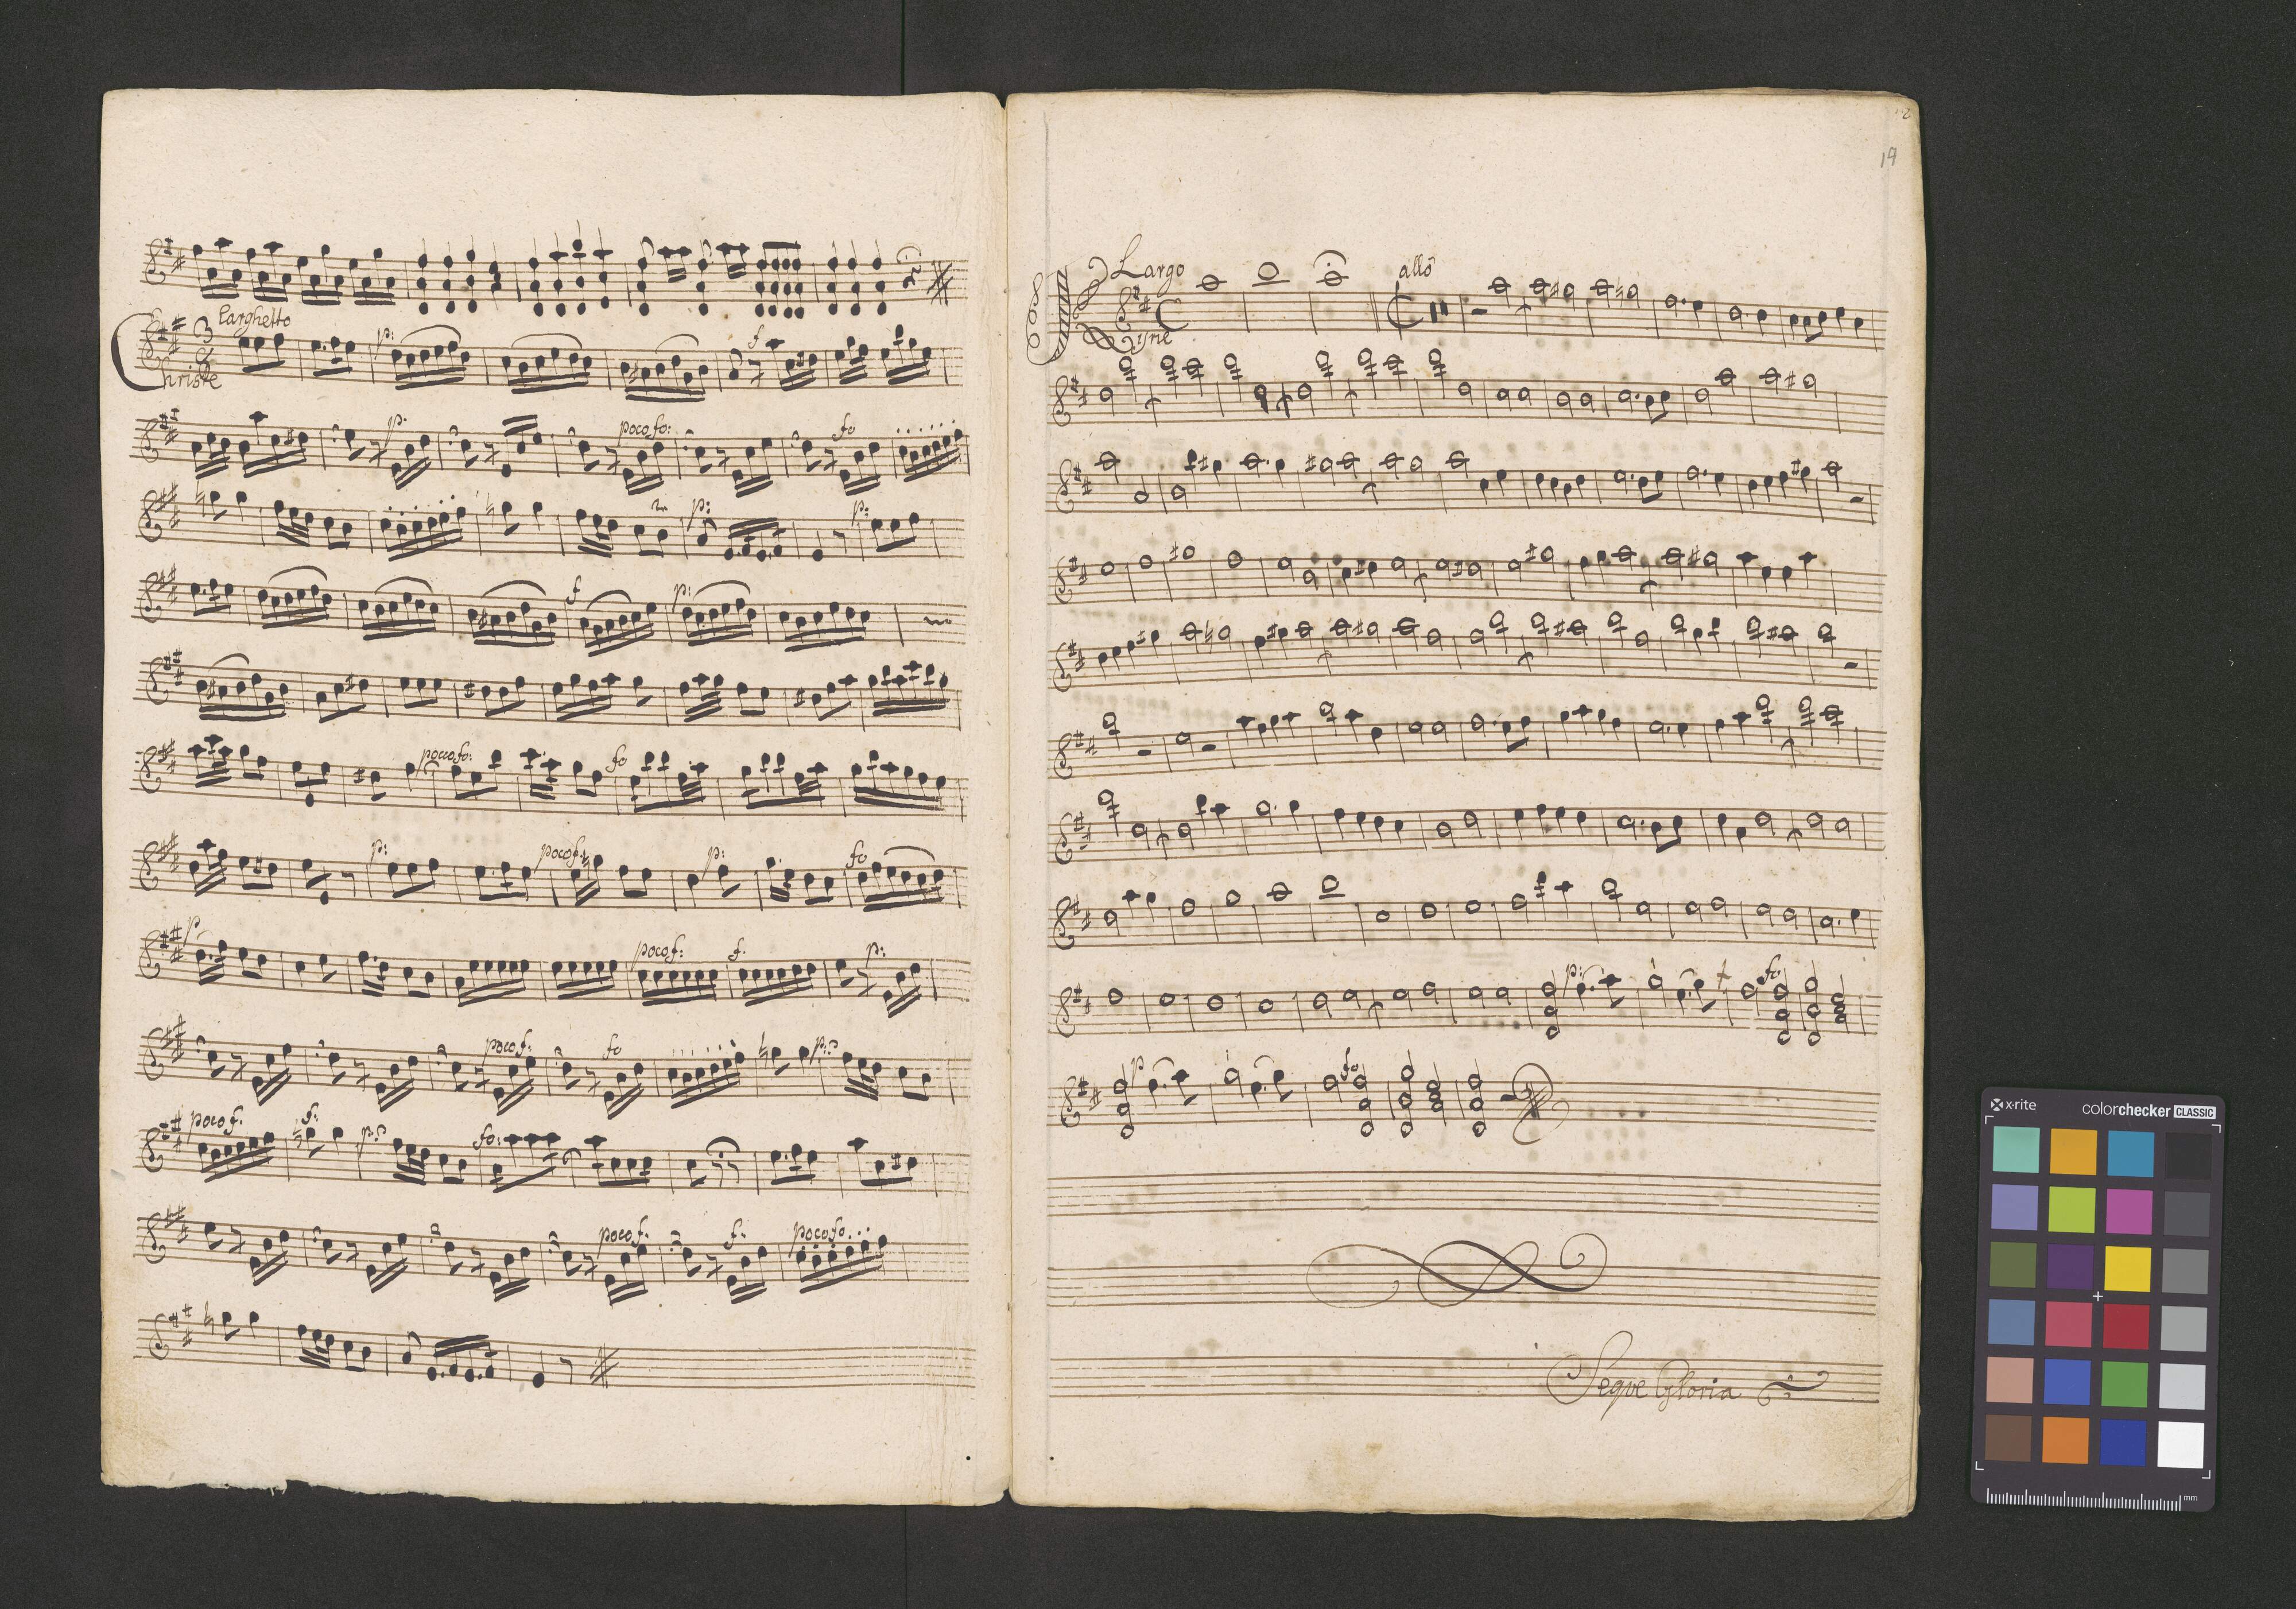 Larghetto
Christe
p: f
p: poco fo: fo
p: p:
f p:
poco fo: fo
p: poco f: p: fo
p poco f: f. p:
poco f: fo p:
poco f. f: p: fo:
poco f. f. poco fo.
2
19
Largo allo
Kyrie
p: fo
p fo
Seque Gloria
x-rite colorchecker CLASSIC
mm